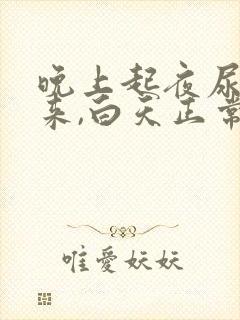 晚上起夜尿
来,白天正常
唯愛妖妖